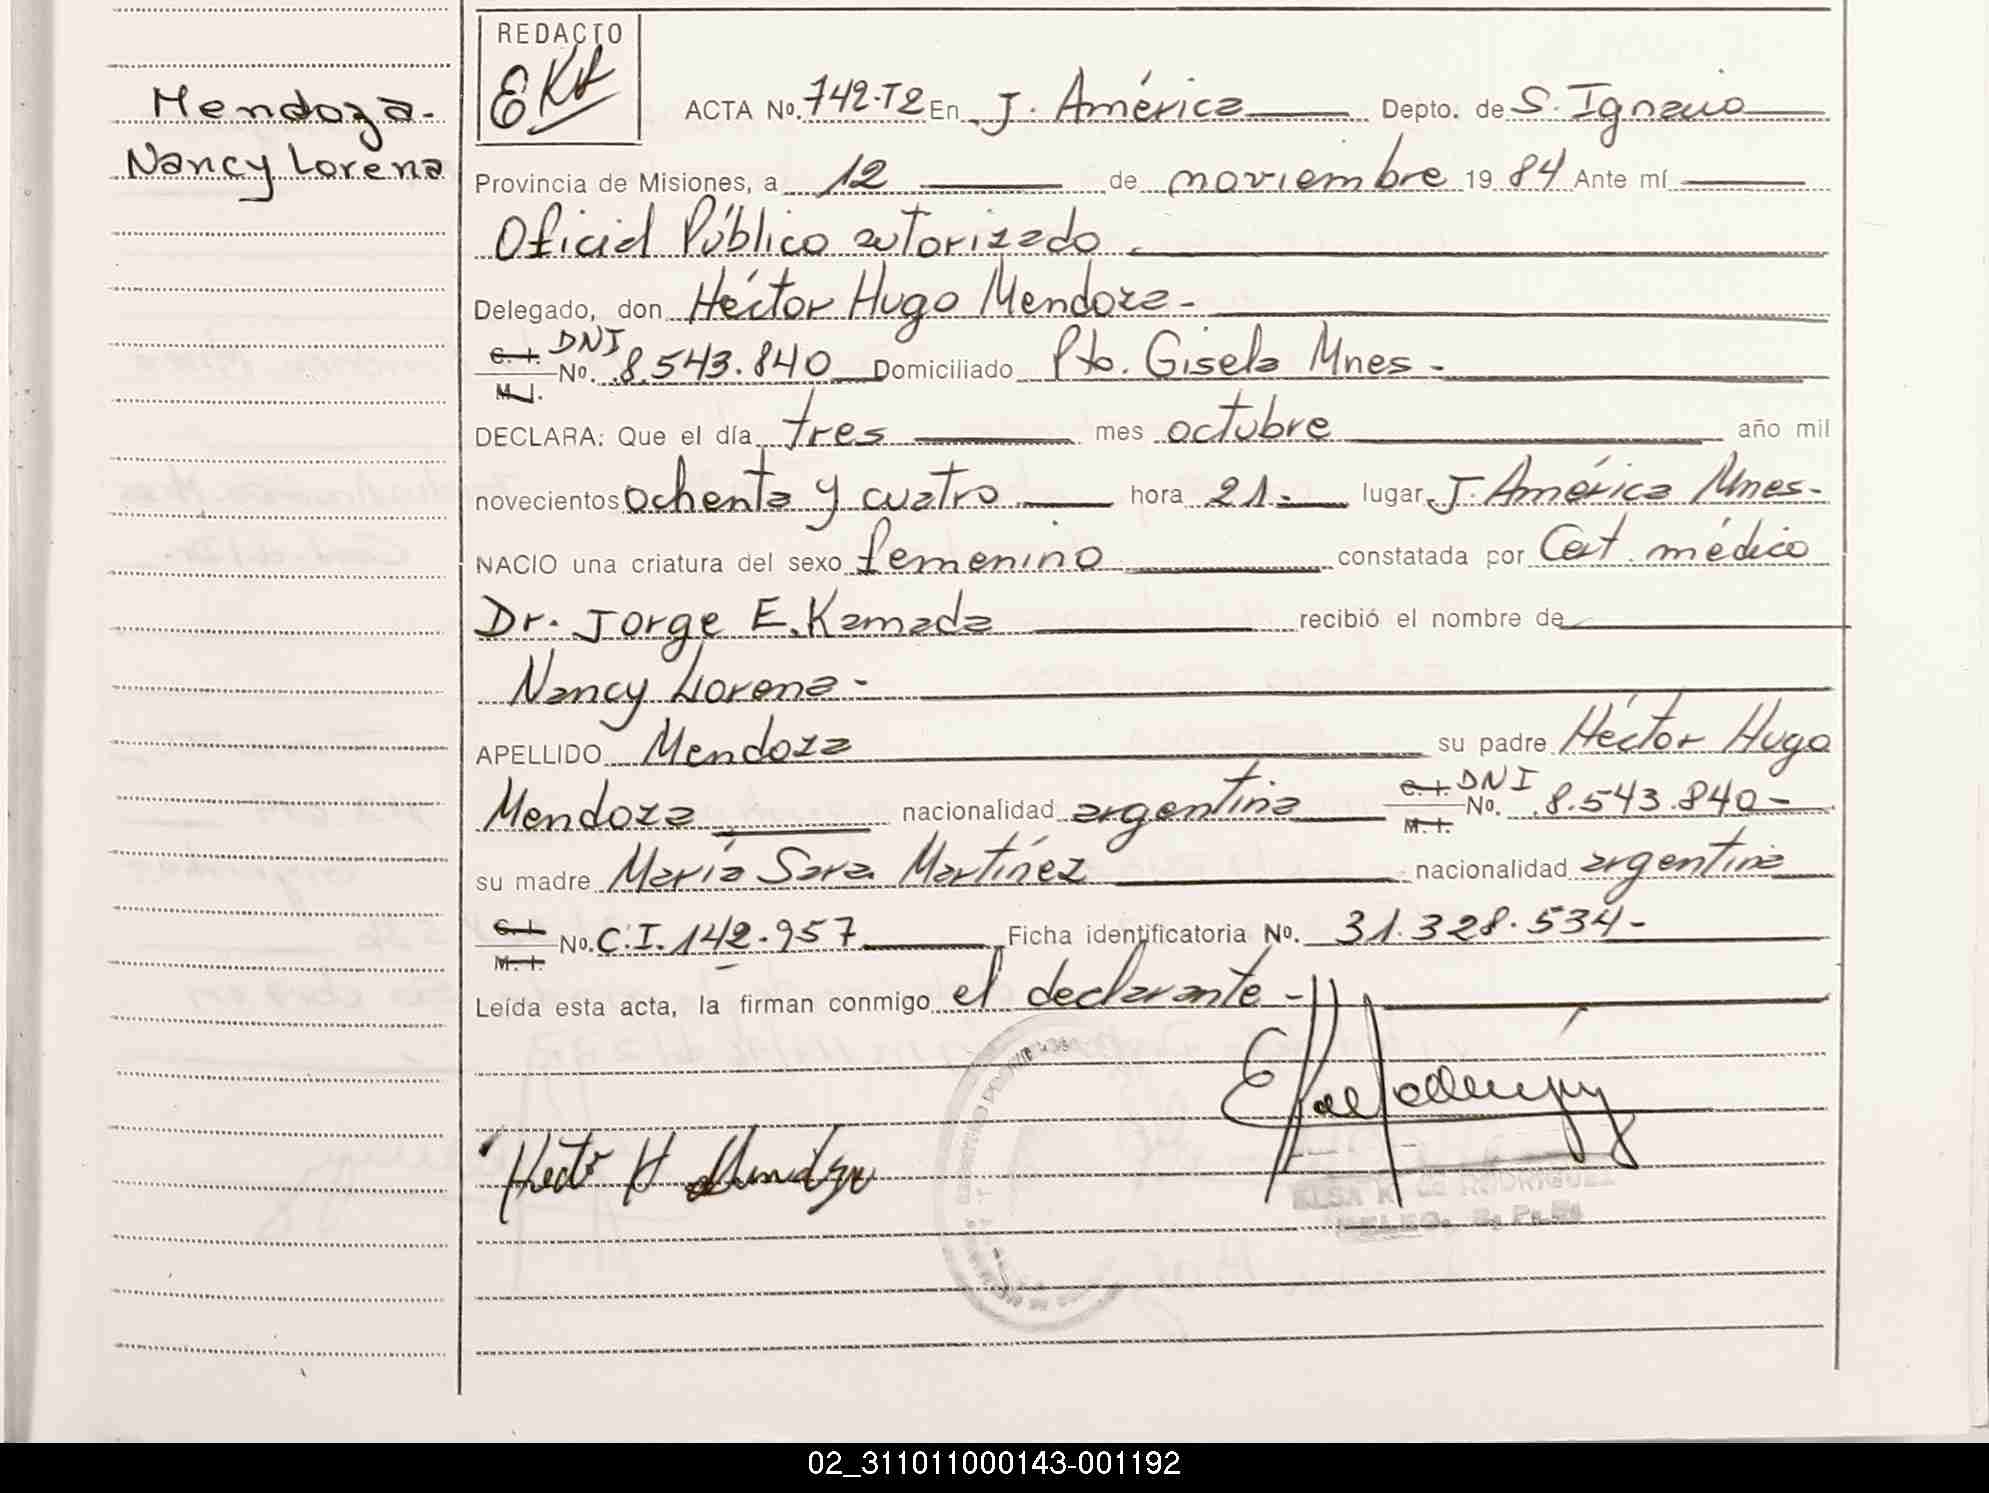 REDACTO
EKR
Mendoza.
Nancy Lorena
ACTA No. 742-T2 En J. América Depto. de S. Ignacio
Provincia de Misiones, a 12 de noviembre 1984 Ante mí
Oficial Público autorizado.
Delegado, don Héctor Hugo Mendoza-
C. I. DNI
M. I. No. 8.543.840 Domiciliado Pto. Gisela Mnes-
DECLARA: Que el día tres mes octubre año mil
novecientos ochenta y cuatro hora 21- lugar J. América Mnes-
NACIO una criatura del sexo femenino constatada por Cert. médico
Dr. Jorge E. Kamada recibió el nombre de
Nancy Lorena-
APELLIDO Mendoza su padre Héctor Hugo
Mendoza nacionalidad argentina C. I. DNI M. I. No. 8.543.840-
su madre María Sara Martínez nacionalidad argentina
C. I. M. I. No. C.I. 142.957 Ficha identificatoria No. 31.328.534-
Leída esta acta, la firman conmigo el declarante-
Hector H Mendoza
ELSA K. de RODRIGUEZ
02_311011000143-001192